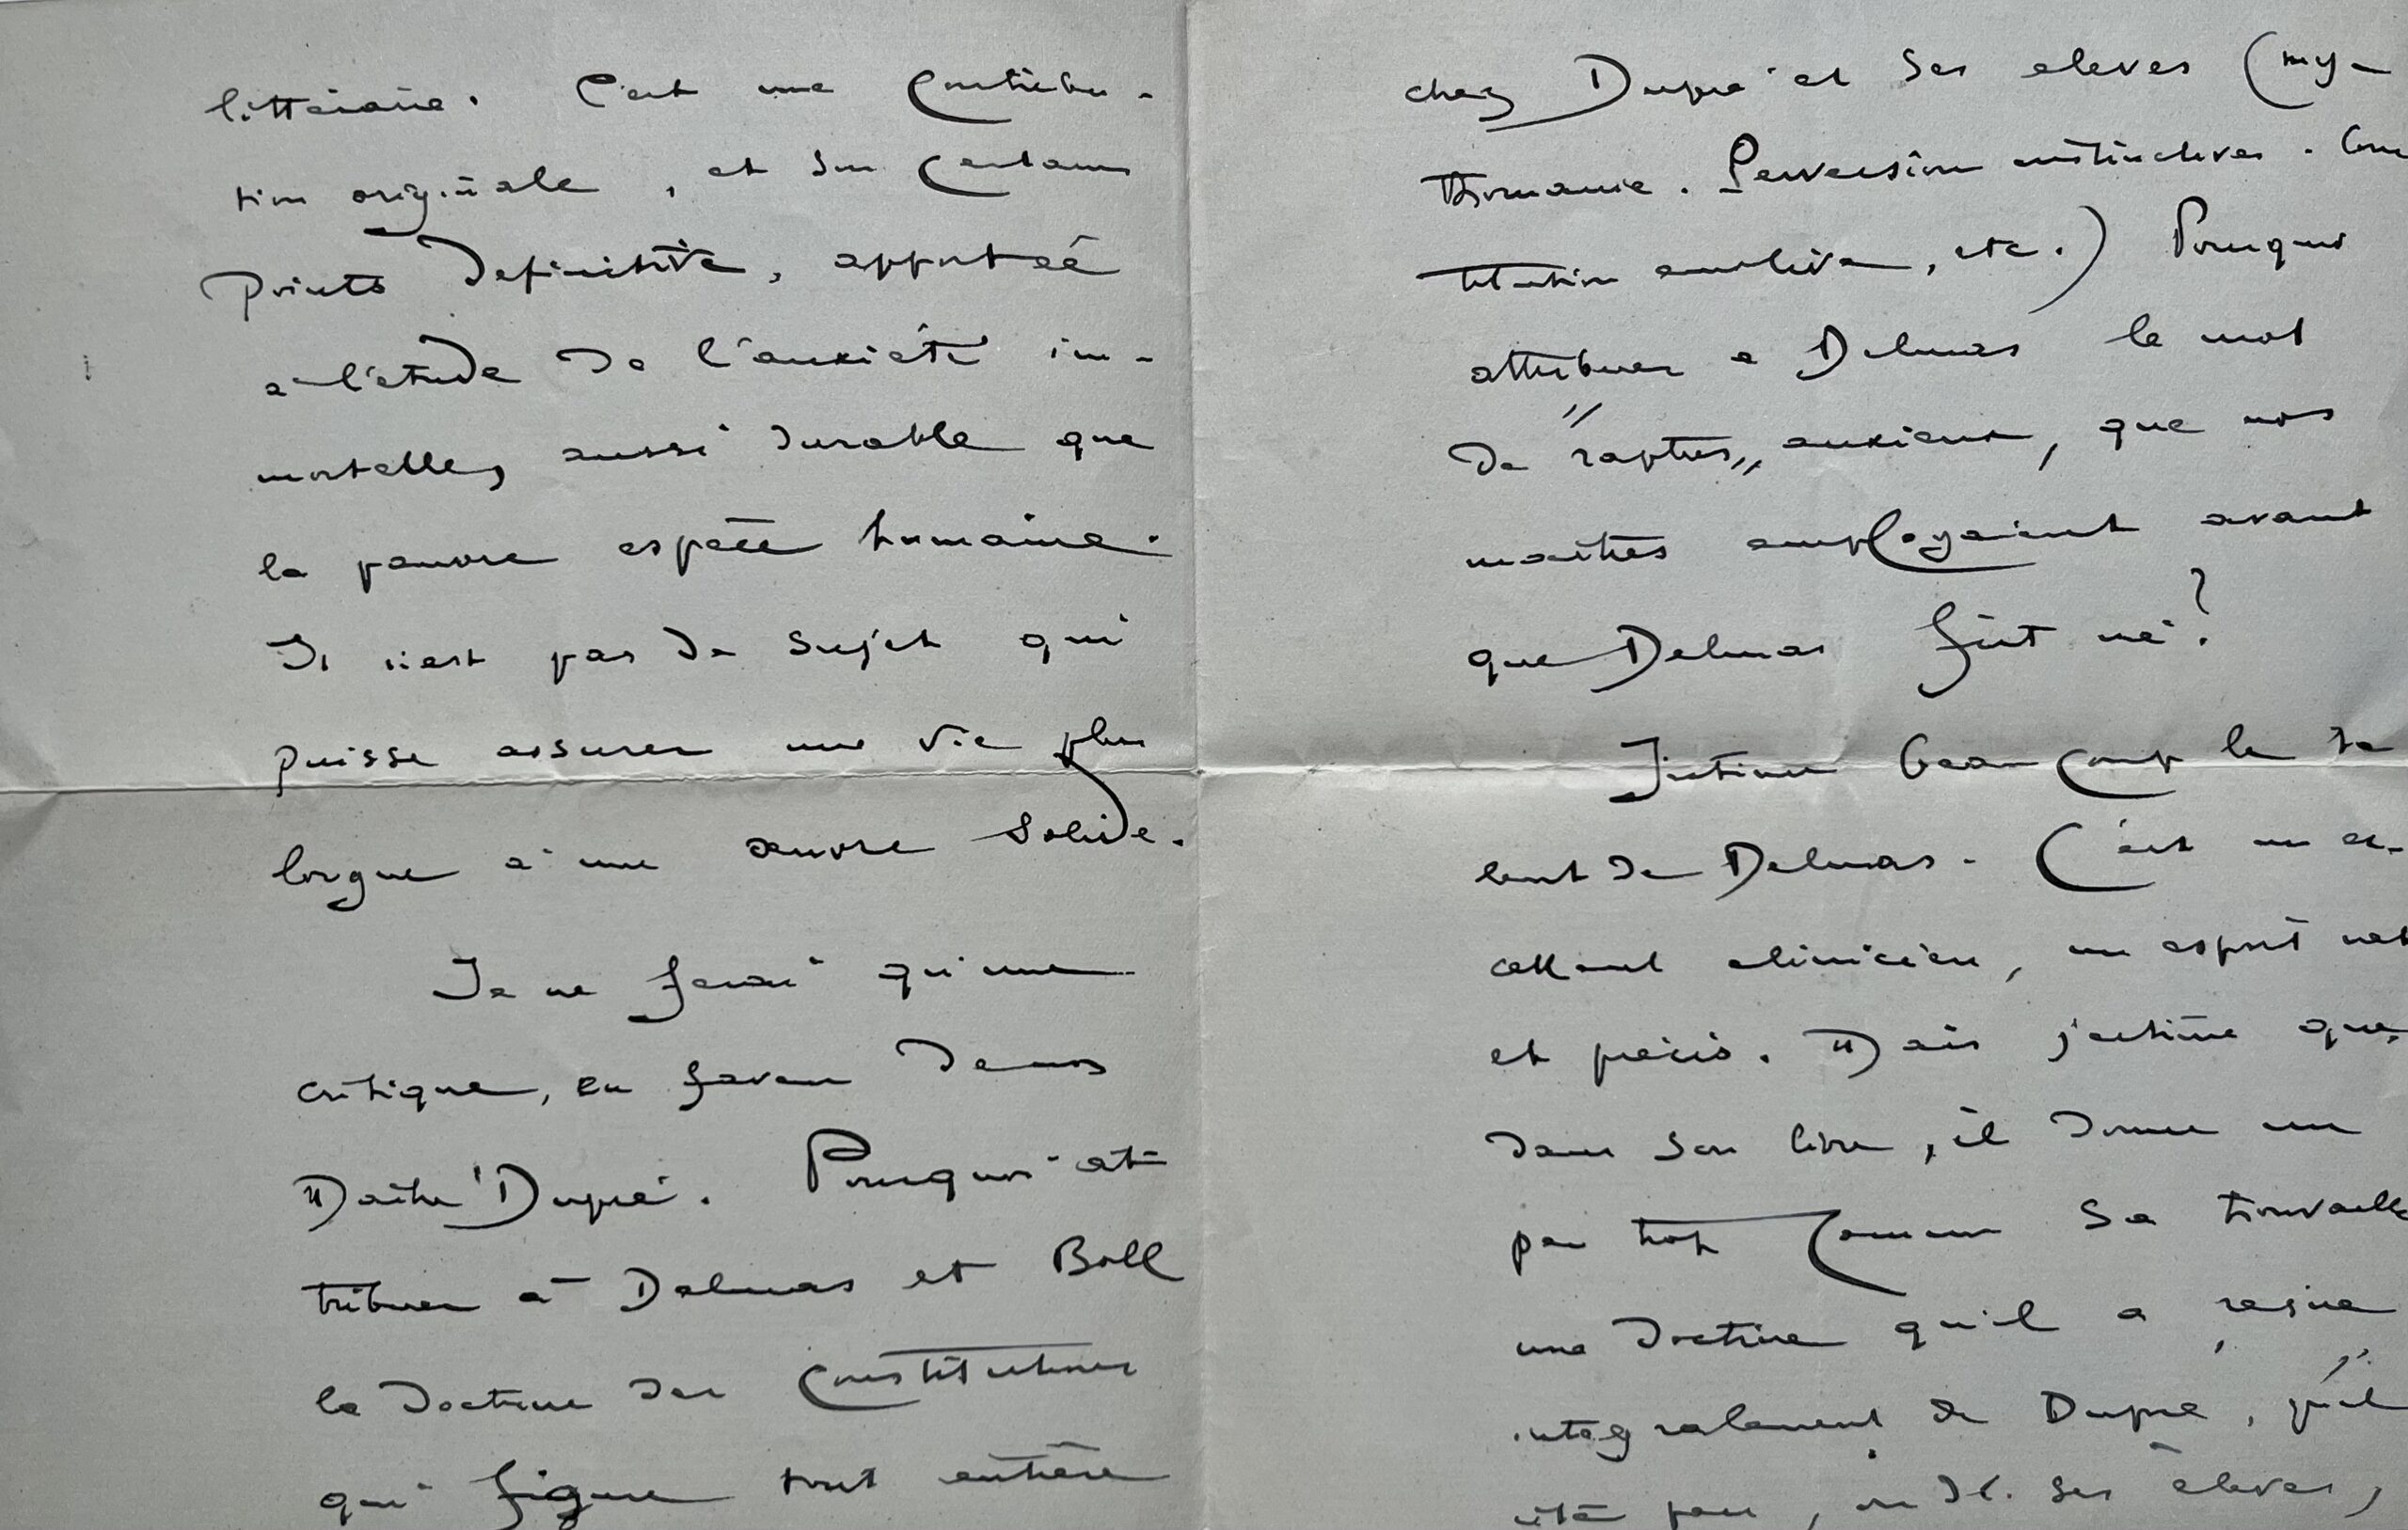 littéraire. C'est une contribu-
tion originale, et sur certains
points définitive, apportée
à l'étude de l'anxiété im-
mortelle, aussi durable que
la pauvre espèce humaine.
Il n'est pas de sujet qui
puisse assurer une vie plus
longue à une œuvre solide.
Je ne ferai qu'une
critique, en faveur de mon
Maître Dupré. Pourquoi at-
tribuer à Delmas et Boll
la doctrine des constitutions
qui figure tout entière
chez Dupré et ses élèves (my-
thomanie. Perversion instinctives. Cons
titution émotive, etc.) Pourquoi
attribuer à Delmas le mot
de "raptus" anxieux, que nos
maîtres employaient avant
que Delmas fût né?
J'estime beaucoup le ta
lent de Delmas. C'est un ex-
cellent clinicien, un esprit net
et précis. Mais j'estime que,
dans son livre, il donne un
peu trop comme sa trouvaille
une doctrine qu'il a reçue
intégralement de Dupré,
 ses élèves,